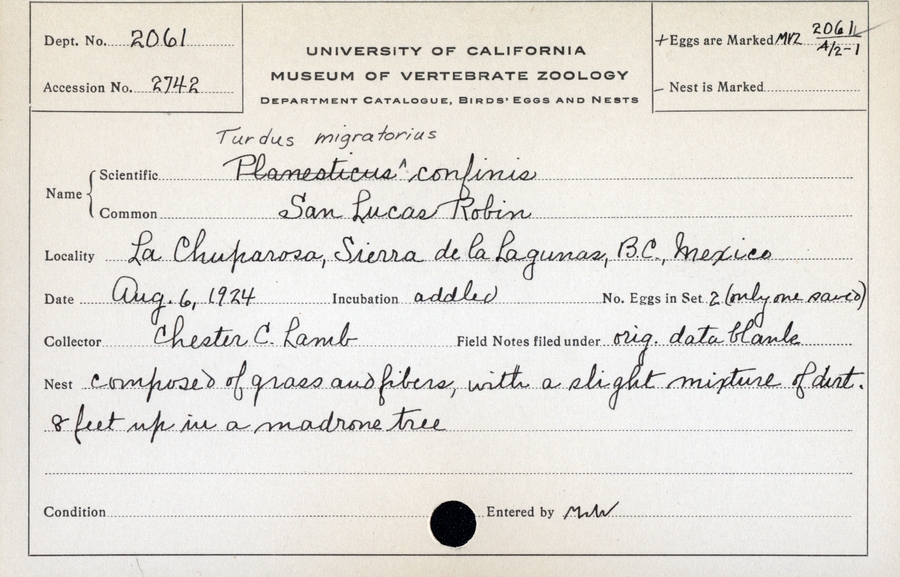 Dept. No. 2061
Accession No. 2742
UNIVERSITY OF CALIFORNIA
MUSEUM OF VERTEBRATE ZOOLOGY
DEPARTMENT CATALOGUE, BIRDS' EGGS AND NESTS
+Eggs are Marked MVZ 2061 A/2-1
- Nest is Marked
Turdus migratorius
Name
Scientific Planesticus ^ confinis
Common San Lucas Robin
Locality La Chuparosa, Sierra de la Lagunas, B.C., Mexico
Date Aug. 6, 1924 Incubation addled No. Eggs in Set 2 (only one saved)
Collector Chester C. Lamb Field Notes filed under orig. data blank
Nest composed of grass and fibers, with a slight mixture of dirt.
8 feet up in a madrone tree
Condition Entered by